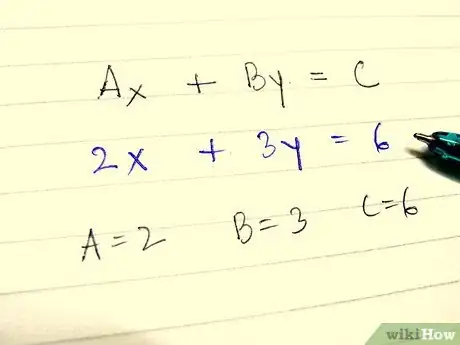 Ax + By = C
2x + 3y = 6
A = 2 B = 3 C = 6
wikiHow